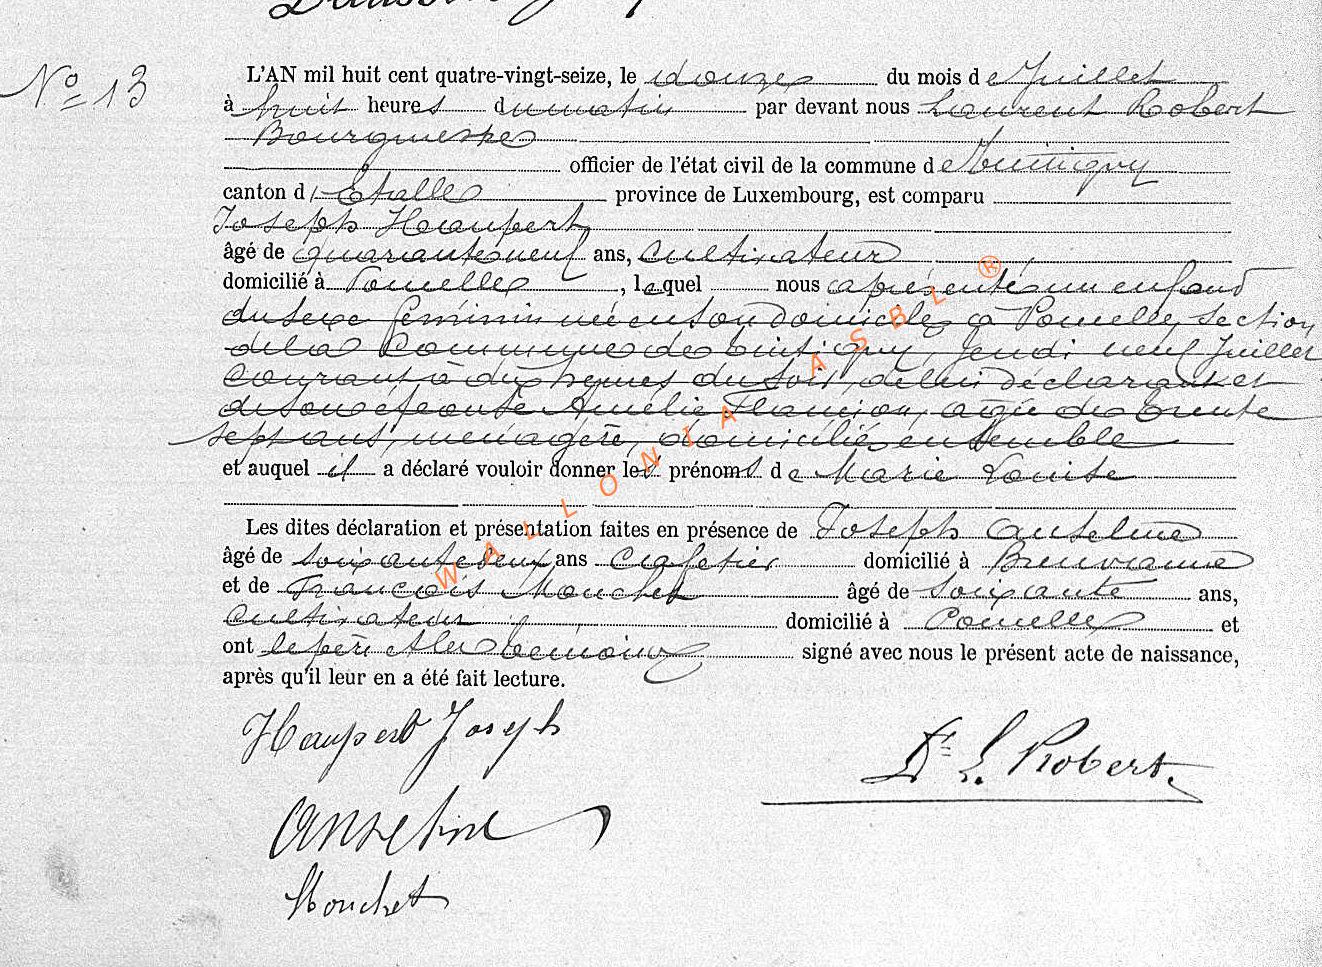 No 13
L'AN mil huit cent quatre-vingt-seize, le douze du mois de Juillet
à huit heures du matin par devant nous Laurent Robert
Bourgmestre
officier de l'état civil de la commune de Tintigny
canton d'Etalle province de Luxembourg, est comparu
Joseph Haupert
âgé de quarante neuf ans, cultivateur
domicilié à Poncelle, lequel nous a présenté un enfant
du sexe féminin né en son domicile à Poncelle, section
de la Commune de Tintigny, Jeudi neuf Juillet
courant à dix heures du soir, de lui déclarant et
de son épouse Amélie agée de trente
sept ans, ménagère, domiciliés ensemble
et auquel il a déclaré vouloir donner les prénoms de Marie Louise
Les dites déclaration et présentation faites en présence de Joseph Anselme
âgé de soixante deux ans cafetier domicilié à Breuvanne
et de François Mouchet âgé de soixante ans,
cultivateur domicilié à Poncelle et
ont le père et les témoins signé avec nous le présent acte de naissance,
après qu'il leur en a été fait lecture.
Haupert Joseph
Dr L. Robert.
Anselme
Mouchet
WALLONIA ASBL ®